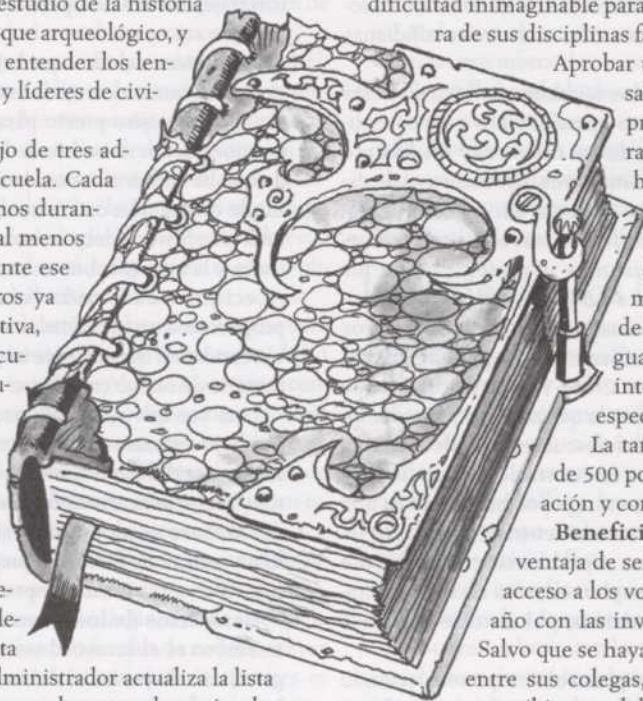 estudio de la historia
que arqueológico, y
entender los len-
y líderes de civi-
jo de tres ad-
cuela. Cada
nos duran-
al menos
nte ese
ros ya
tiva,
cu-
e-
le-
ta
dministrador actualiza la lista
dificultad inimaginable para
ra de sus disciplinas f
Aprobar
sa
pr
ra
h
s n
de
gua
inte
espec
La tar
de 500 po
ación y con
Benefici
ventaja de se
acceso a los vo
año con las inv
Salvo que se haya
entre sus colegas,